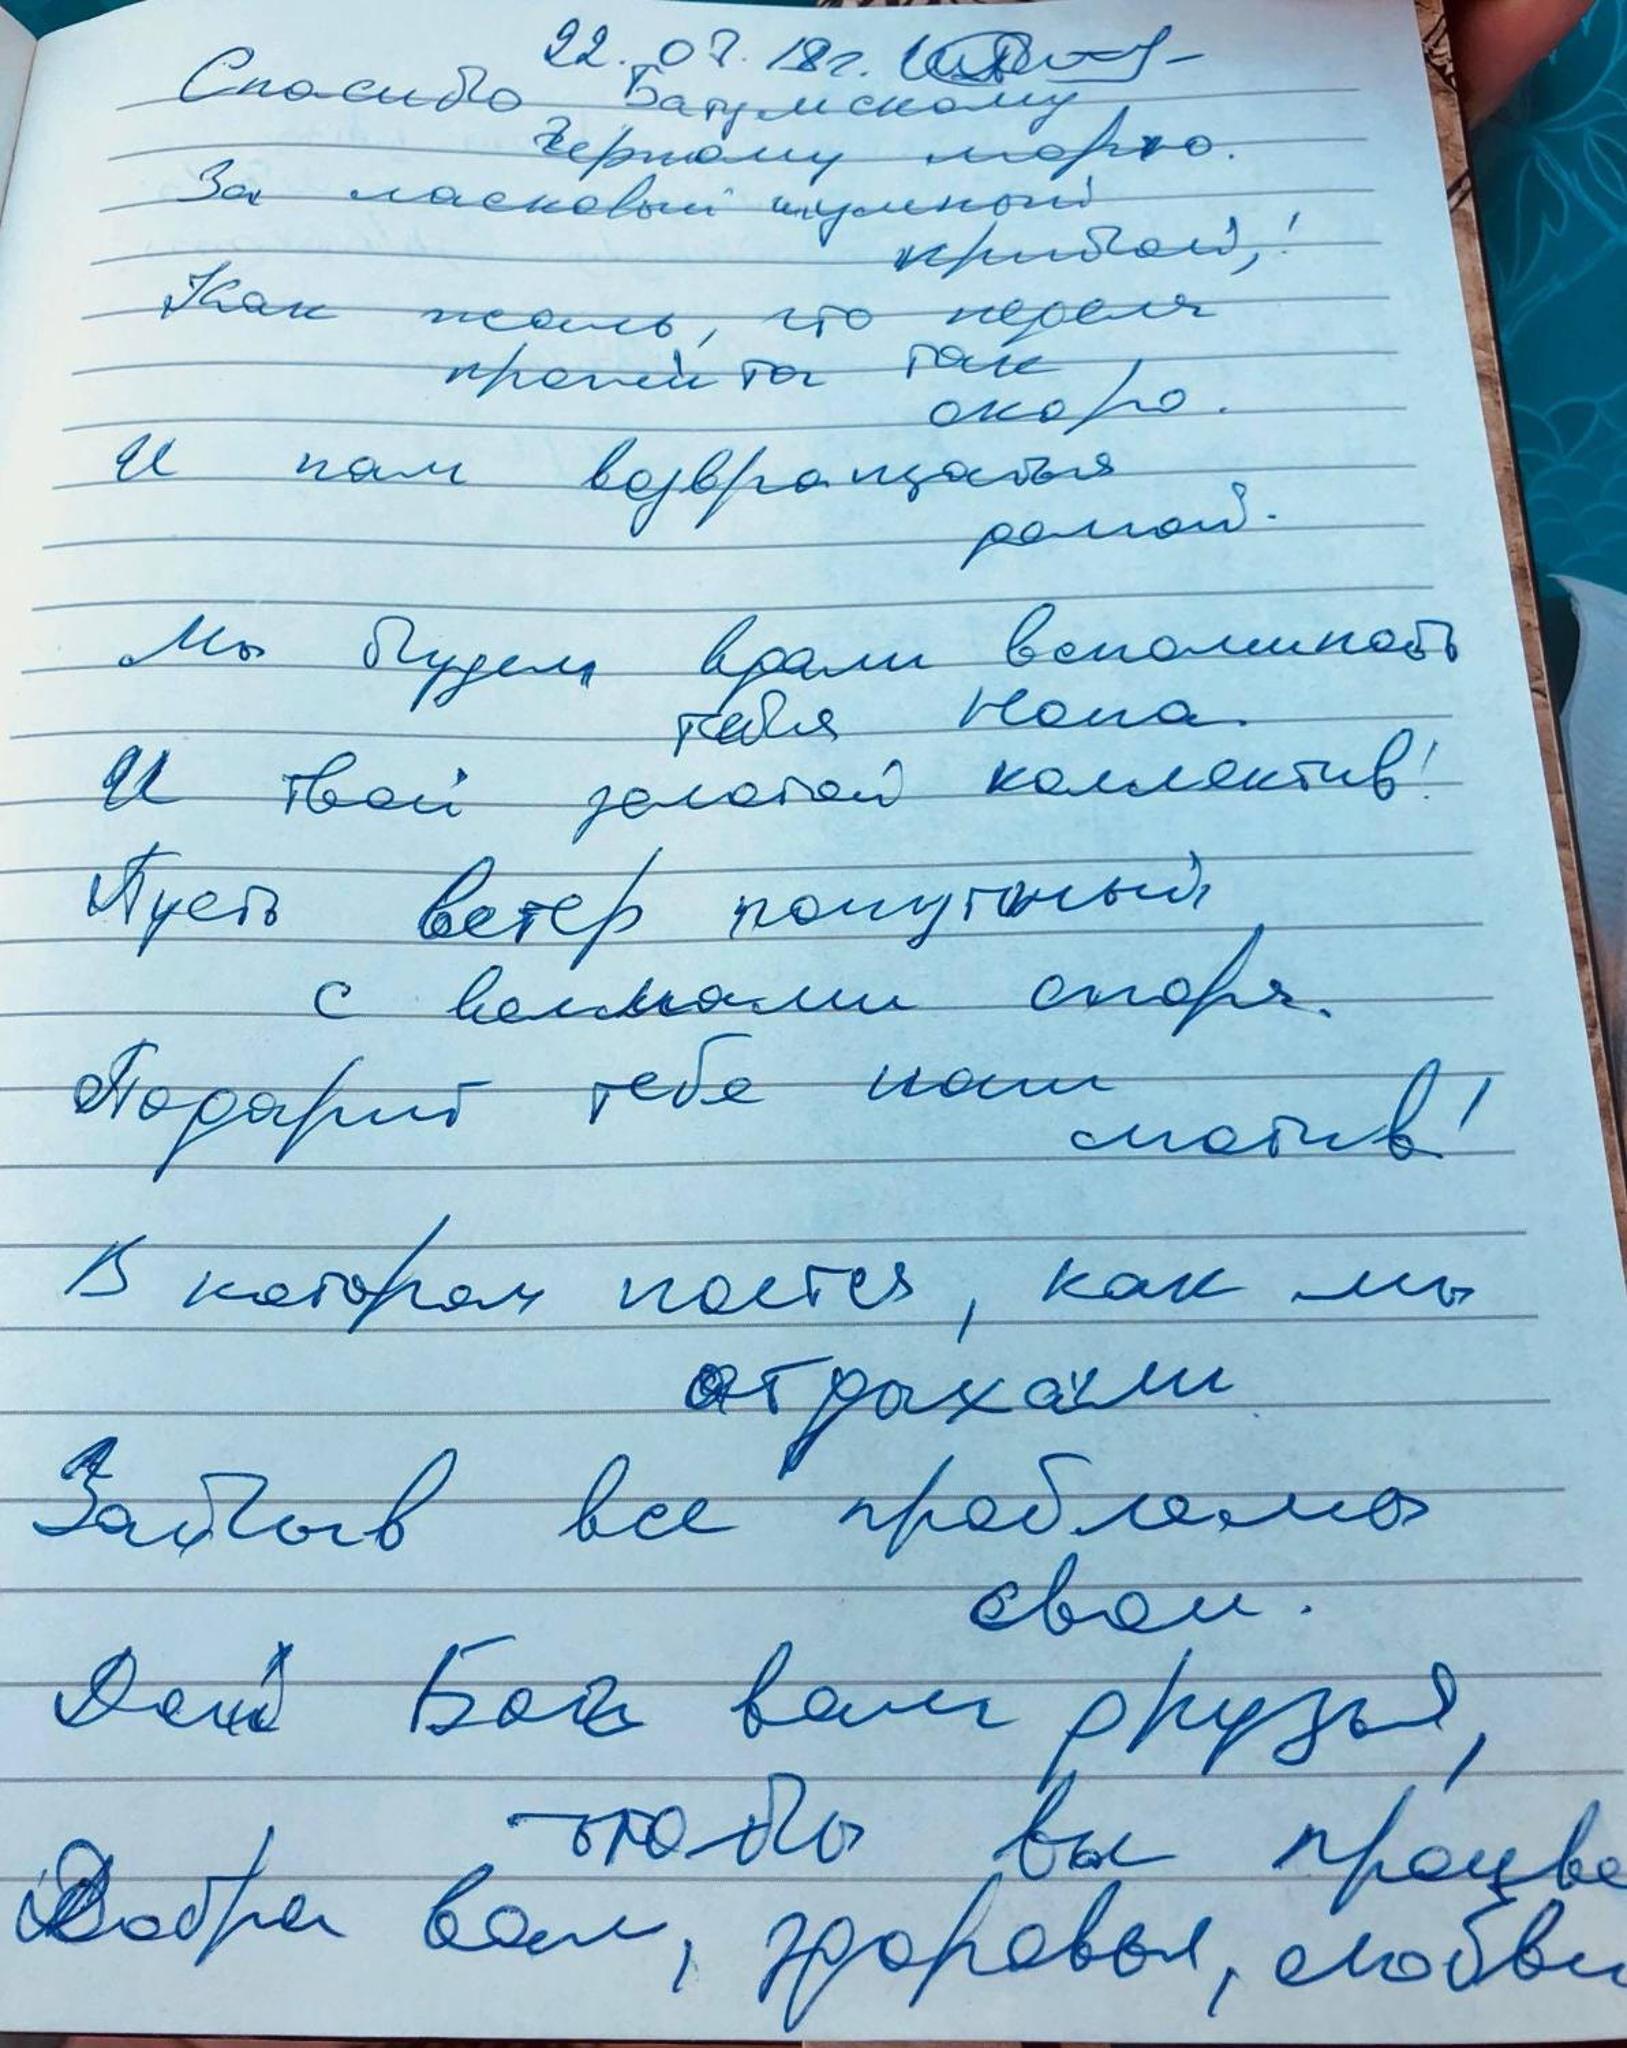 22.07.18г.
Спасибо Батумскому
Черному морю.
За ласковый шумный
прибой,!
Как жаль, что неделя
пройдта так
скоро.
И нам возвращаться
домой.
Мы будем вдали вспоминать
тебя Нана.
И твой золотой коллектив!
Пусть ветер попутный
с волнами споря.
Подарит тебе наш
мотив!
В котором поется, как мы
отдыхали
Забыв все проблемы
свои.
Дай Бог вам друзья,
чтобы вы процве
Добра вам, здоровья, любви